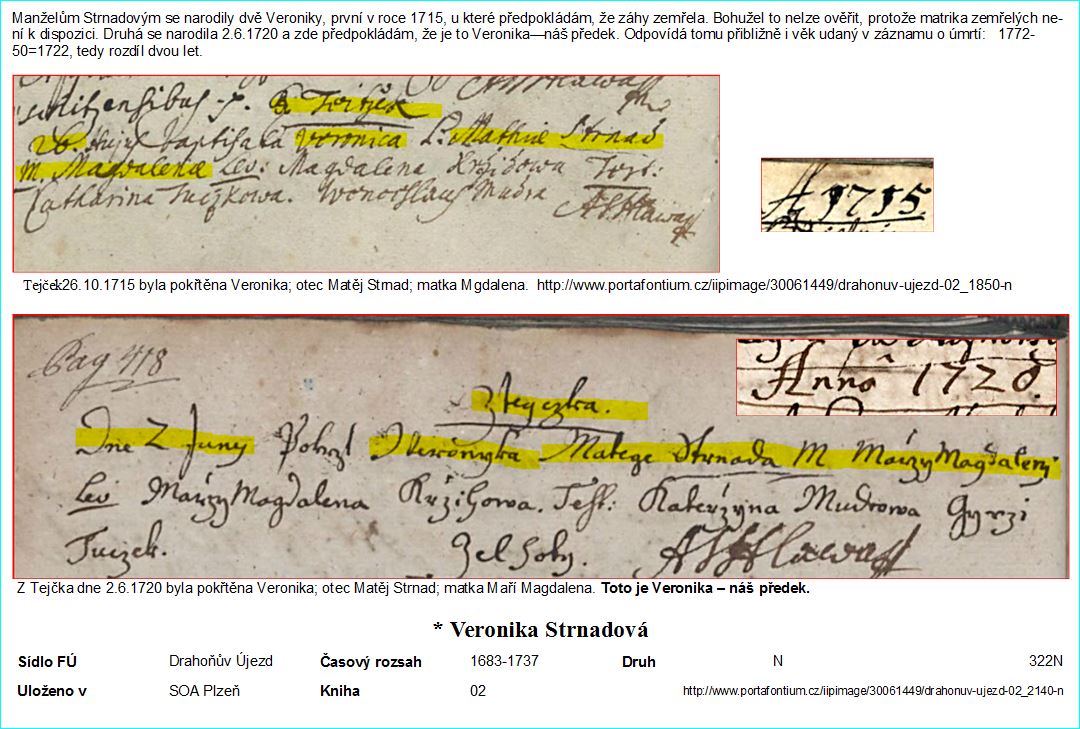 Manželům Strnadovým se narodily dvě Veroniky, první v roce 1715, u které předpokládám, že záhy zemřela. Bohužel to nelze ověřit, protože matrika zemřelých ne-
ní k dispozici. Druhá se narodila 2.6.1720 a zde předpokládám, že je to Veronika—náš předek. Odpovídá tomu přibližně i věk udaný v záznamu o úmrtí: 1772-
50=1722, tedy rozdíl dvou let.
26. baptisata Veronica P. Mathie Strnad
M Magdalena Lev: Magdalena Test:
Catharina Tuczkowa.
A 1715
Tejček26.10.1715 byla pokřtěna Veronika; otec Matěj Strnad; matka Mgdalena. http://www.portafontium.cz/iipimage/30061449/drahonuv-ujezd-02_1850-n
Pag 418
Anno 1720
Ztegczka.
Dne 2 Juny Pokrzt Weronyka Matege Strnada M Marzy Magdaleny
Lev Marzy Magdalena Krziżowa. Test: Katerzyna Mudrowa Gyrzi
Tuczek.
Z Tejčka dne 2.6.1720 byla pokřtěna Veronika; otec Matěj Strnad; matka Maří Magdalena. Toto je Veronika – náš předek.
* Veronika Strnadová
Sídlo FÚ Drahoňův Újezd Časový rozsah 1683-1737 Druh N 322N
Uloženo v SOA Plzeň Kniha 02 http://www.portafontium.cz/iipimage/30061449/drahonuv-ujezd-02_2140-n